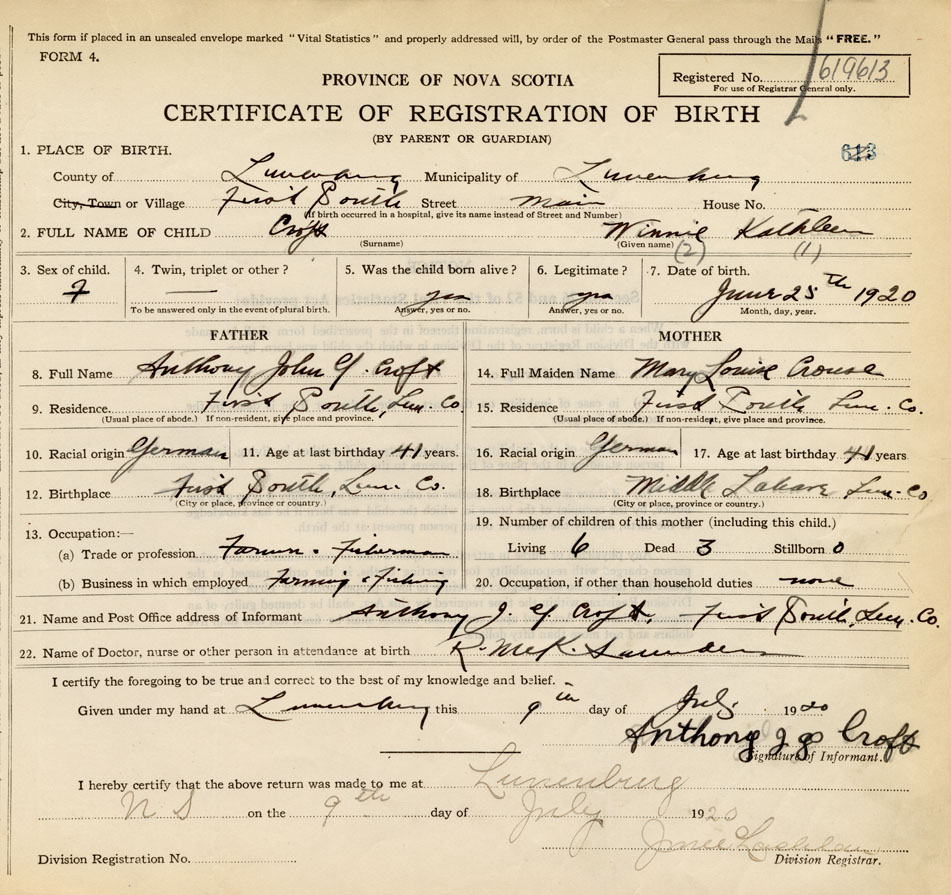 This form if placed in an unsealed envelope marked "Vital Statistics" and properly addressed will, by order of the Postmaster General pass through the Mails "FREE."
FORM 4.
Registered No. 619613
For use of Registrar General only.
PROVINCE OF NOVA SCOTIA
CERTIFICATE OF REGISTRATION OF BIRTH
(BY PARENT OR GUARDIAN)
613
1. PLACE OF BIRTH.
County of Lunenburg Municipality of Lunenburg
City, Town or Village First South Street main House No.
(If birth occurred in a hospital, give its name instead of Street and Number)
2. FULL NAME OF CHILD Croft Winnie Kathleen
(Surname) (Given name) (2) (1)
3. Sex of child. 4. Twin, triplet or other? 5. Was the child born alive? 6. Legitimate? 7. Date of birth.
F — yes yes June 25th 1920
To be answered only in the event of plural birth. Answer, yes or no. Answer, yes or no. Month, day, year.
FATHER MOTHER
8. Full Name Anthony John G. Croft 14. Full Maiden Name Mary Louise Crouse
9. Residence. First South, Lun. Co 15. Residence First South Lun. Co.
(Usual place of abode.) If non-resident, give place and province. (Usual place of abode.) If non-resident, give place and province.
10. Racial origin German 11. Age at last birthday 41 years. 16. Racial origin German 17. Age at last birthday 41 years
12. Birthplace First South, Lun. Co. 18. Birthplace Middle Lahave Lun. Co
(City or place, province or country.) (City or place, province or country.)
13. Occupation:— 19. Number of children of this mother (including this child.)
(a) Trade or profession Farmer. Fisherman Living 6 Dead 3 Stillborn 0
(b) Business in which employed Farming & Fishing 20. Occupation, if other than household duties none
21. Name and Post Office address of Informant Anthony J. G. Croft, First South, Lun. Co.
22. Name of Doctor, nurse or other person in attendance at birth R. McK. Saunders
I certify the foregoing to be true and correct to the best of my knowledge and belief.
Given under my hand at Lunenburg this 9th day of July 1920
Anthony J G Croft
Signature of Informant.
I hereby certify that the above return was made to me at Lunenburg
N S on the 9th day of July 1920
Division Registration No. Division Registrar.